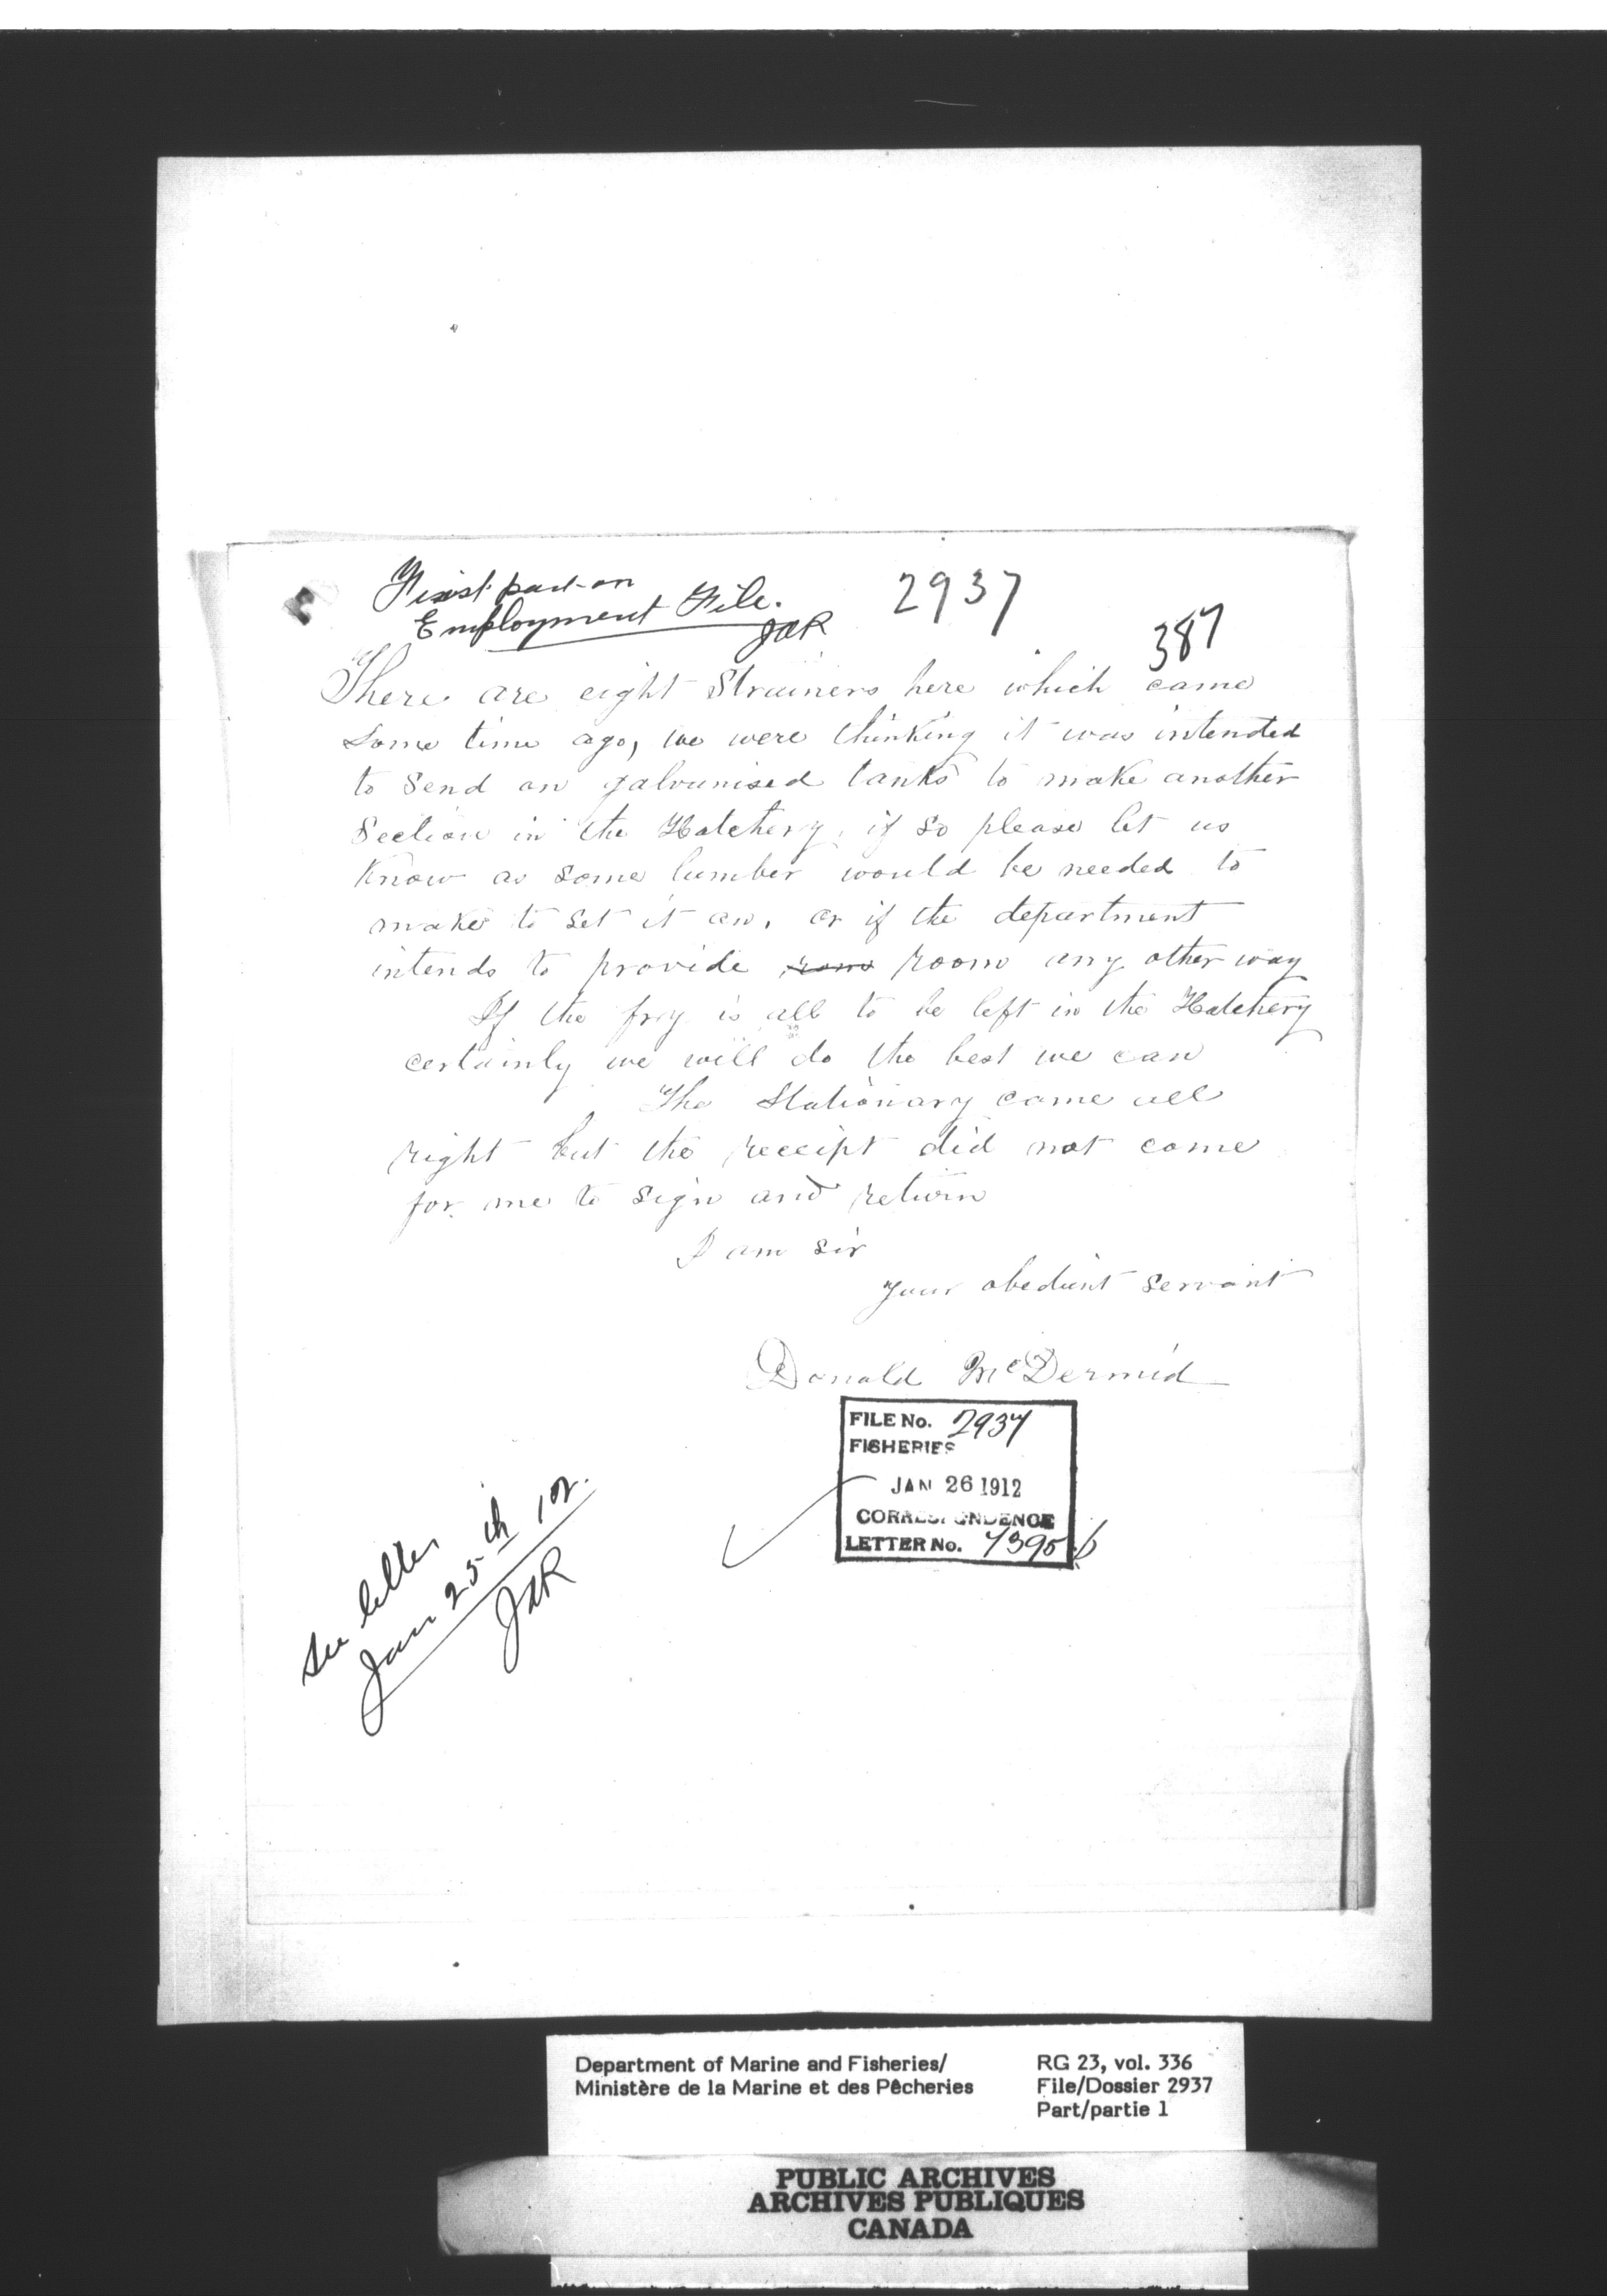 First part on
Employment File.
JAR
2937
387
There are eight Strainers here which came
some time ago, we were thinking it was intended
to Send on galvanised tanks to make another
Section in the Hatchery, if so please let us
Know as some lumber would be needed to
make to set it on, or if the department
intends to provide room any other way
If the fry is all to be left in the Hatchery
certainly we will do the best we can
The Stationary came all
right but the receipt did not come
for me to sign and return
I am sir
your obedient servant
Donald McDermid
FILE No. 2937
FISHERIES
JAN 26 1912
CORRESPONDENCE
LETTER No. 7395
See letter
Jan 25th
JAR
Department of Marine and Fisheries/
Ministère de la Marine et des Pêcheries
RG 23, vol. 336
File/Dossier 2937
Part/partie 1
PUBLIC ARCHIVES
ARCHIVES PUBLIQUES
CANADA